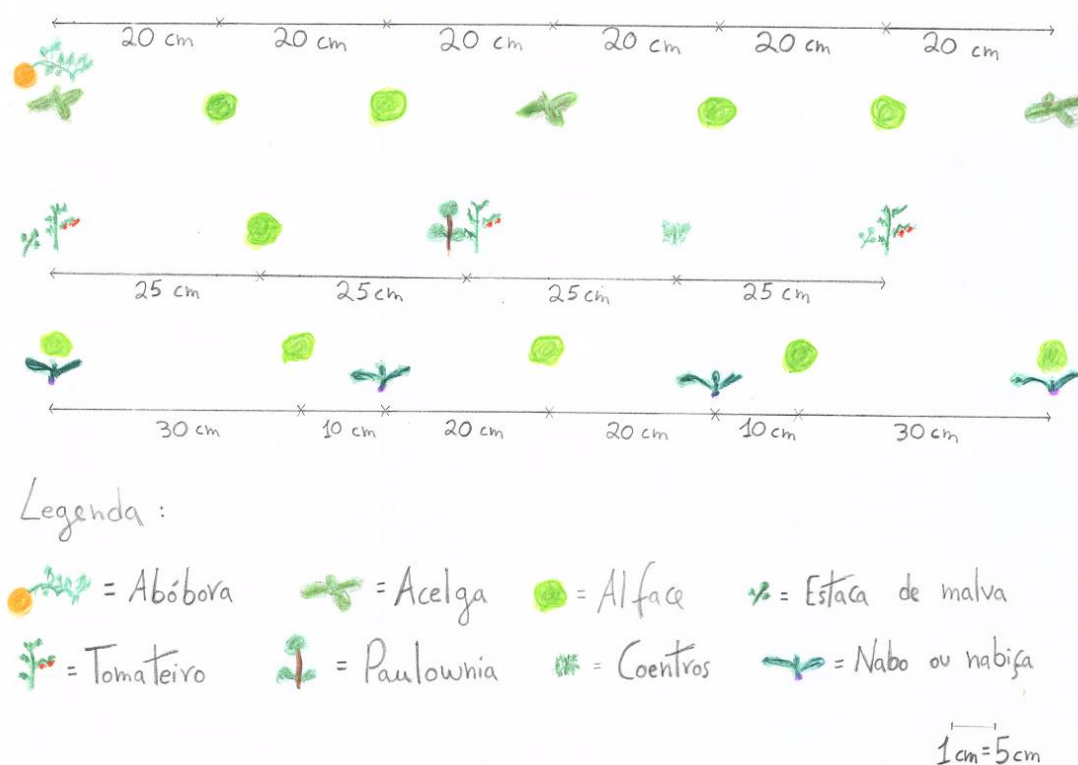 20 cm 20 cm 20 cm 20 cm 20 cm 20 cm
25 cm 25 cm 25 cm 25 cm
30 cm 10 cm 20 cm 20 cm 10 cm 30 cm
Legenda :
= Abóbora = Acelga = Alface = Estaca de malva
= Tomateiro = Paulownia = Coentros = Nabo ou nabiça
1 cm = 5 cm